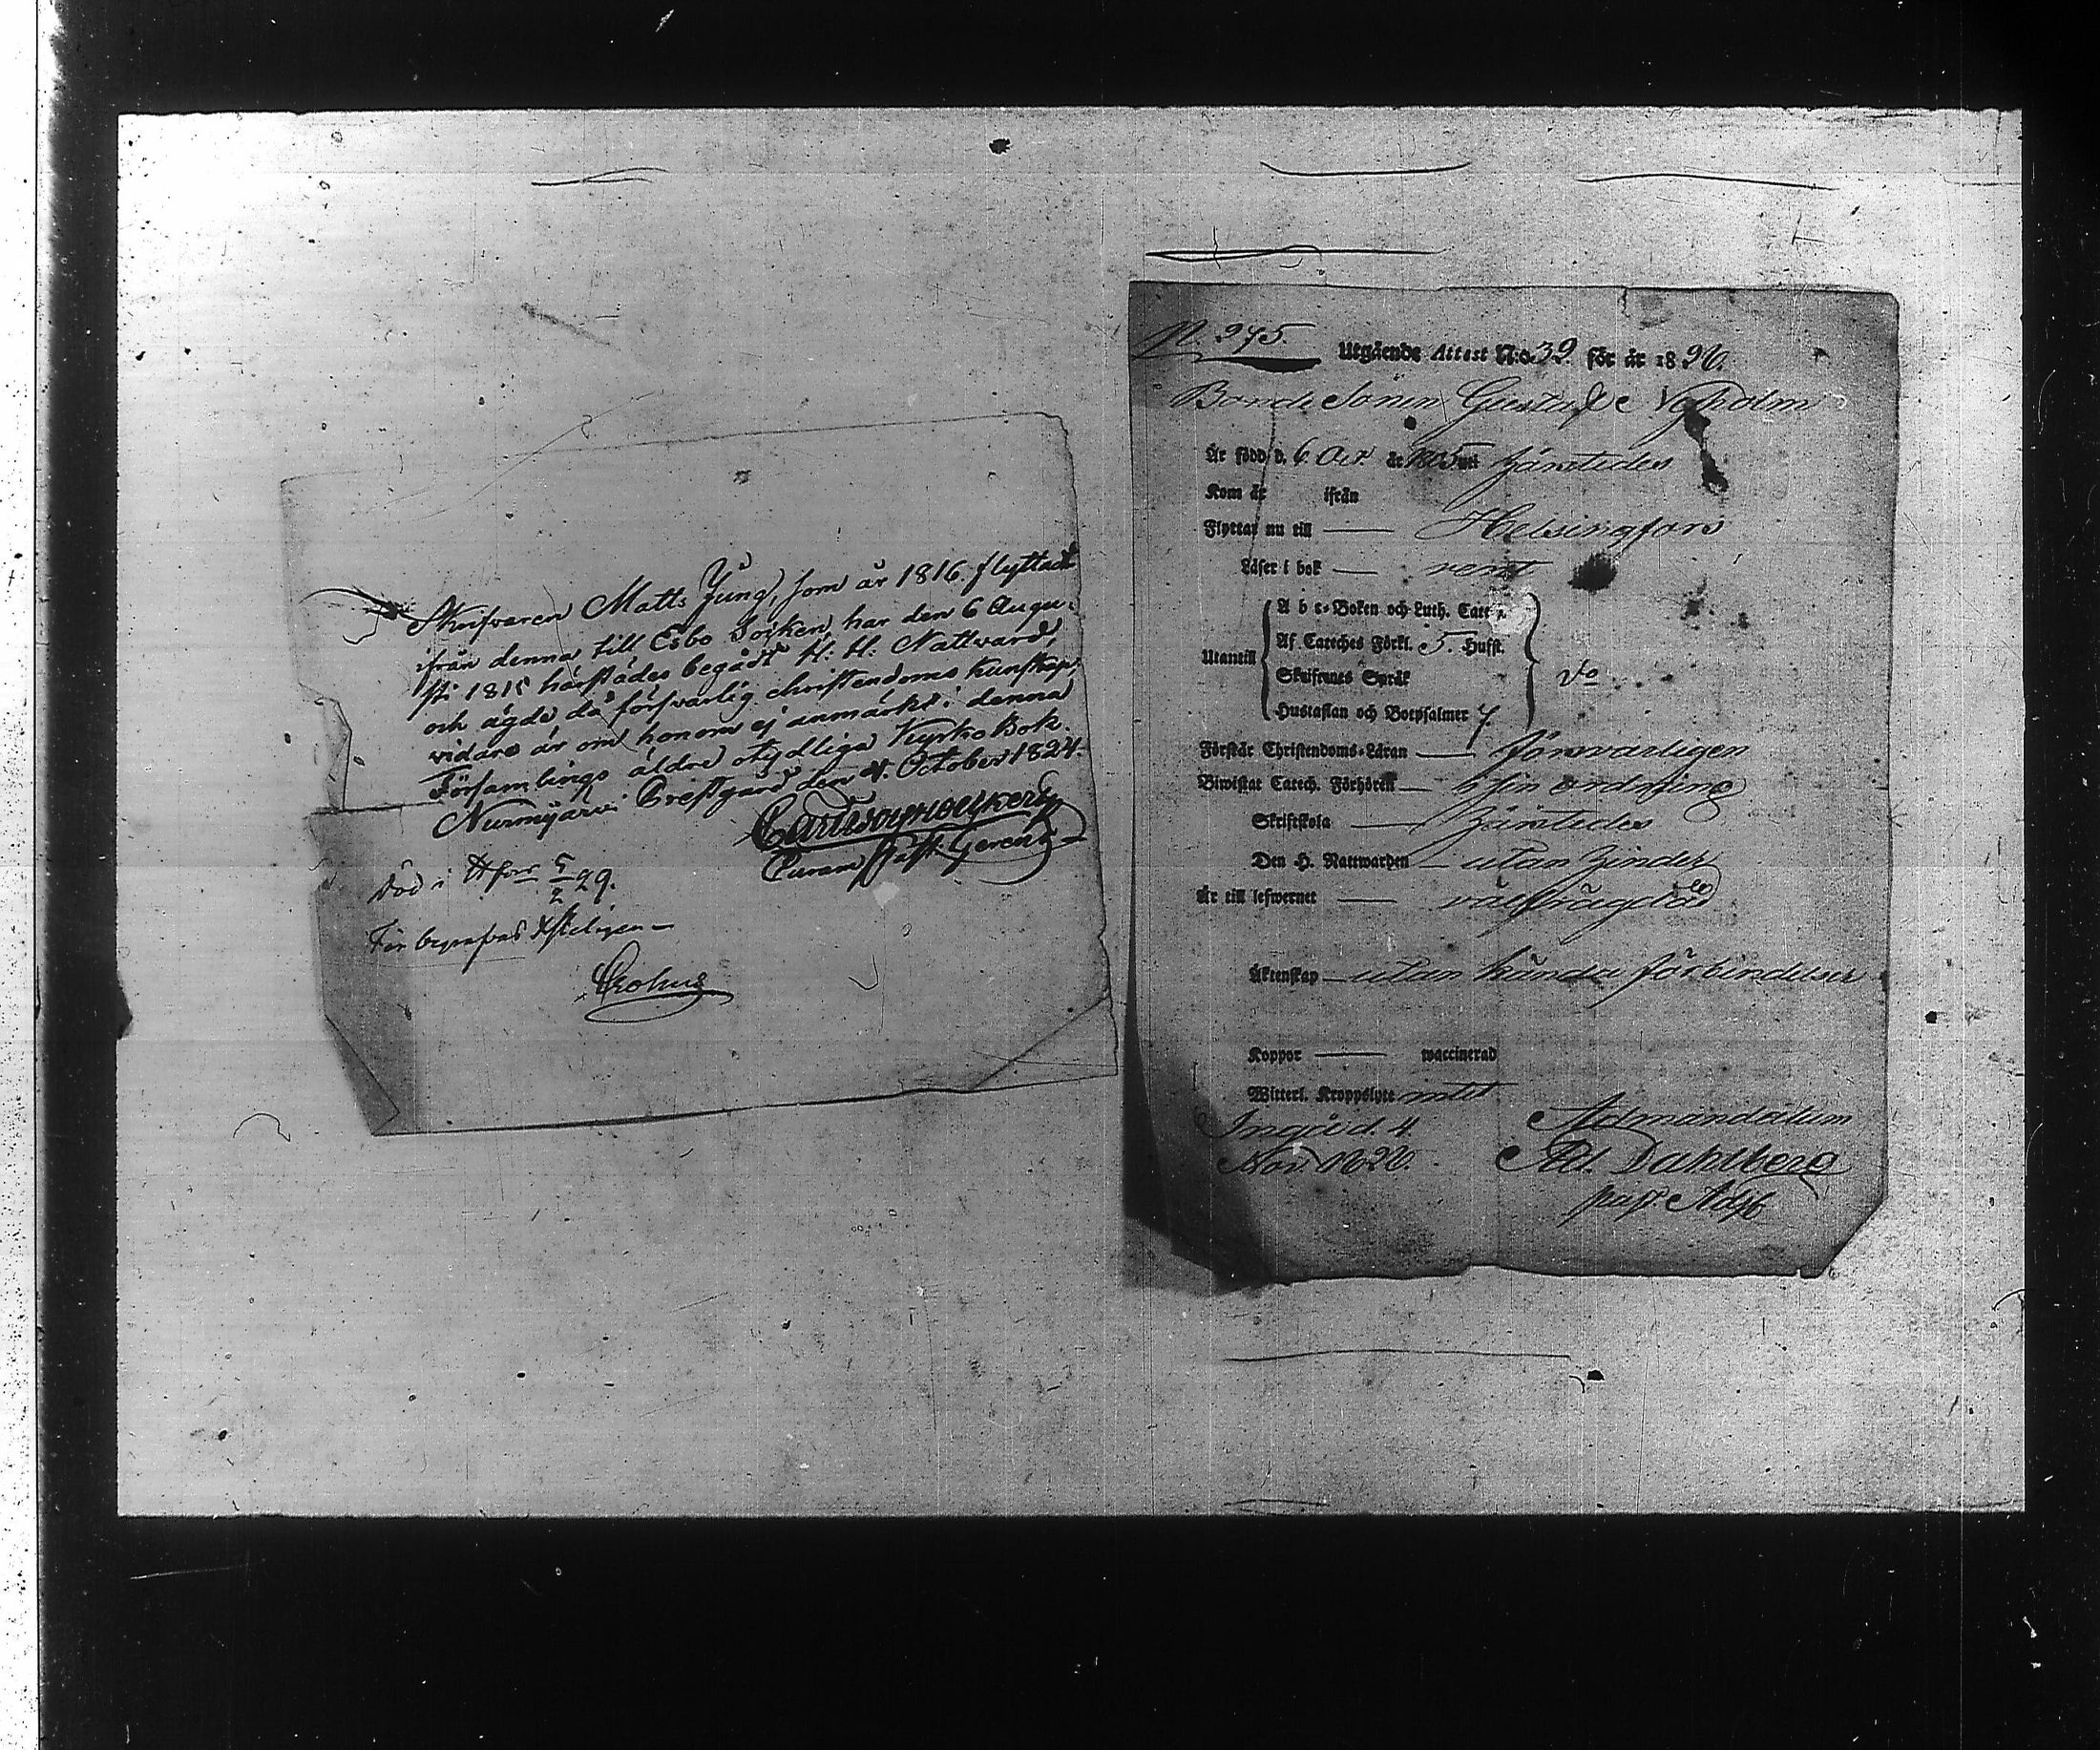 Skrifvaren Matts Jung, som år 1816 flyttade
ifrån denna till Esbo Socken, har den 6 Augu-
sti 1815 härstädes begådt H. H. Nattvard,
och ägde då försvarlig christendoms kunskap;
vidare är om honom ej anmärkt i denna
Församlings äldre otydliga Kyrko Bok.
Nurmijärvi Prestgård den 4. October 1824.
Död i H:fors 5/2 29.
Får begrafvas
Crohns
N. 275.
Utgående Attest N:o 39 för år 1826.
Bonde Sonen Gustaf Nyholm
Är född d. 6 Oct. år 1805 uti härstedes
Kom år ifrån
Flyttar nu till — Helsingfors
Läser i bok — rent
A b c-Boken och Luth. Catec
Af Cateches Förkl. 5. Hufst.
Utantill
Skriftenes Språk
do
Hustaflan och Botpsalmer 7.
Förstår Christendoms-Läran — försvarligen
Biwistat Catech. Förhören — i sin ordning
Skriftskola — härstedes
Den H. Nattwarden — utan hinder
Är till lefwernet — välfrägdad
Äktenskap — utan kända förbindelser
Koppor — waccinerad
Witterl. Kroppslyte intet
Ingå d. 4
Nov. 1826.
Ad mandatum
Ad. Dahlberg
past. Adj.